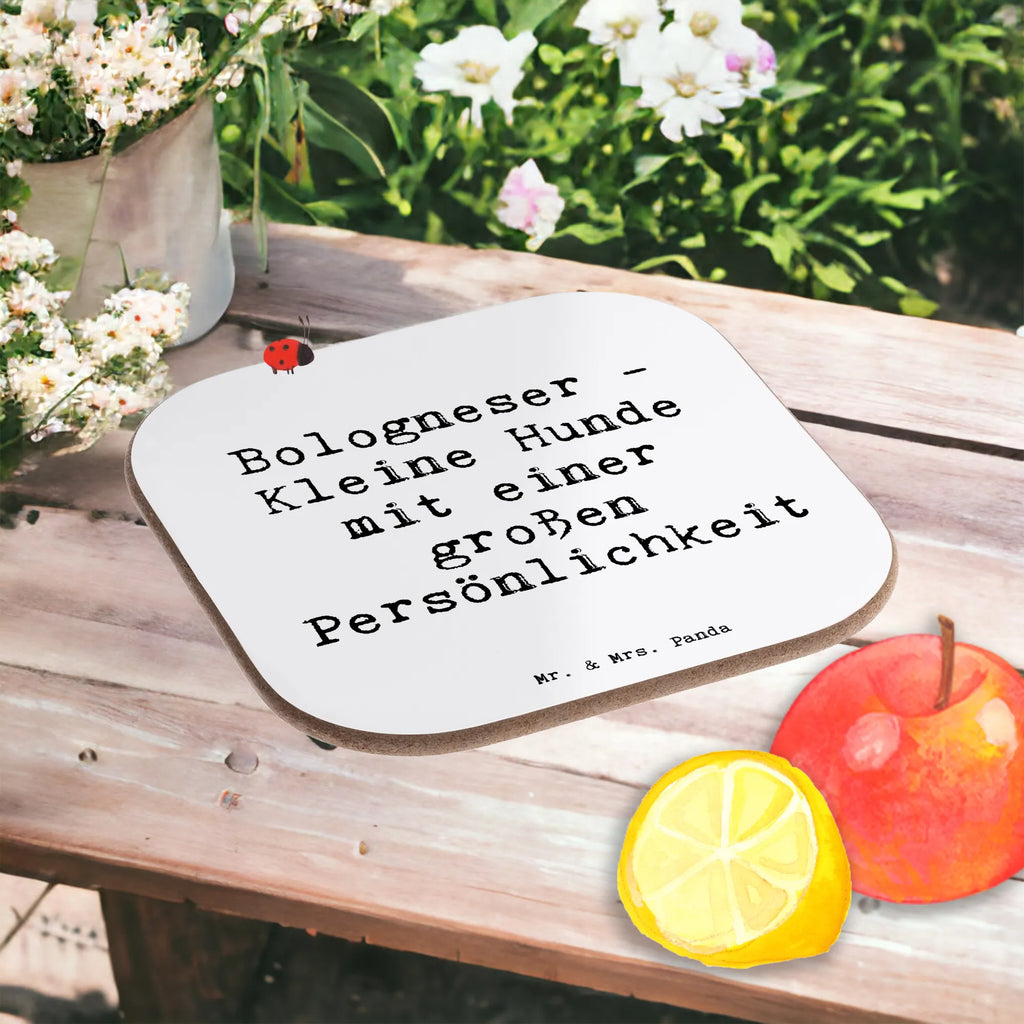 Bologneser -
Kleine Hunde
mit einer
großen
Persönlichkeit
Mr. & Mrs. Panda